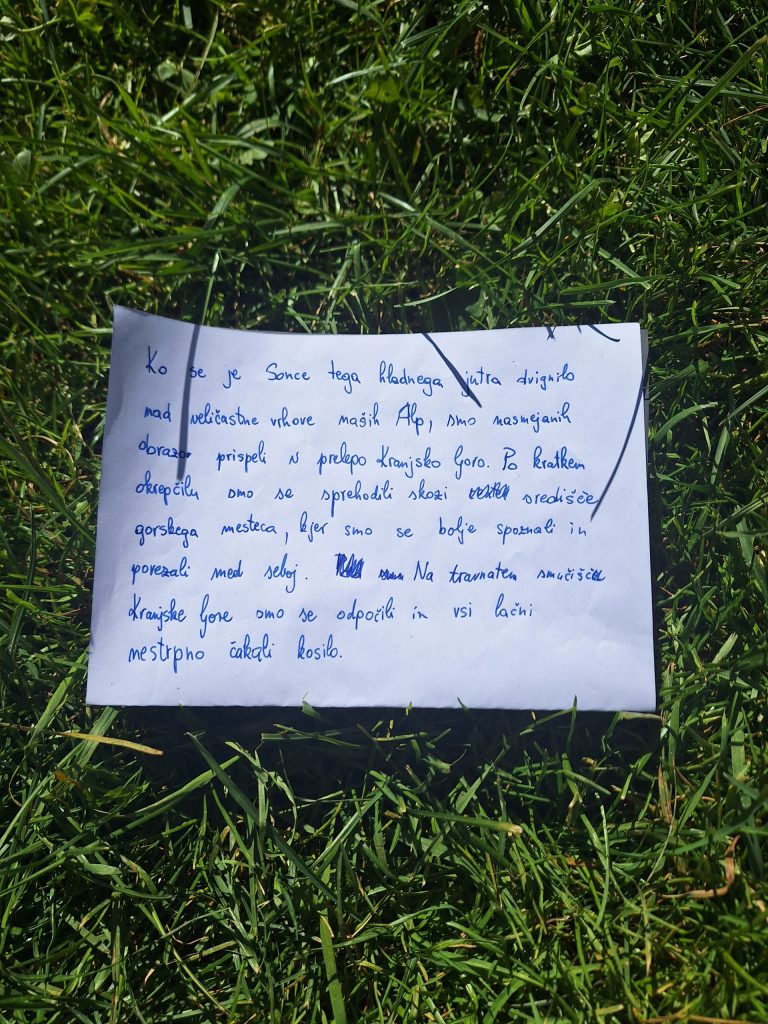 Ko se je Sonce tega hladnega jutra dvignilo
nad veličastne vrhove naših Alp, smo nasmejanih
obrazov prispeli v prelepo Kranjsko Goro. Po kratkem
okrepčilu smo se sprehodili skozi središče
gorskega mesteca, kjer smo se bolje spoznali in
povezali med seboj. Na travnatem smučišču
Kranjske Gore smo se odpočili in vsi lačni
nestrpno čakali kosilo.